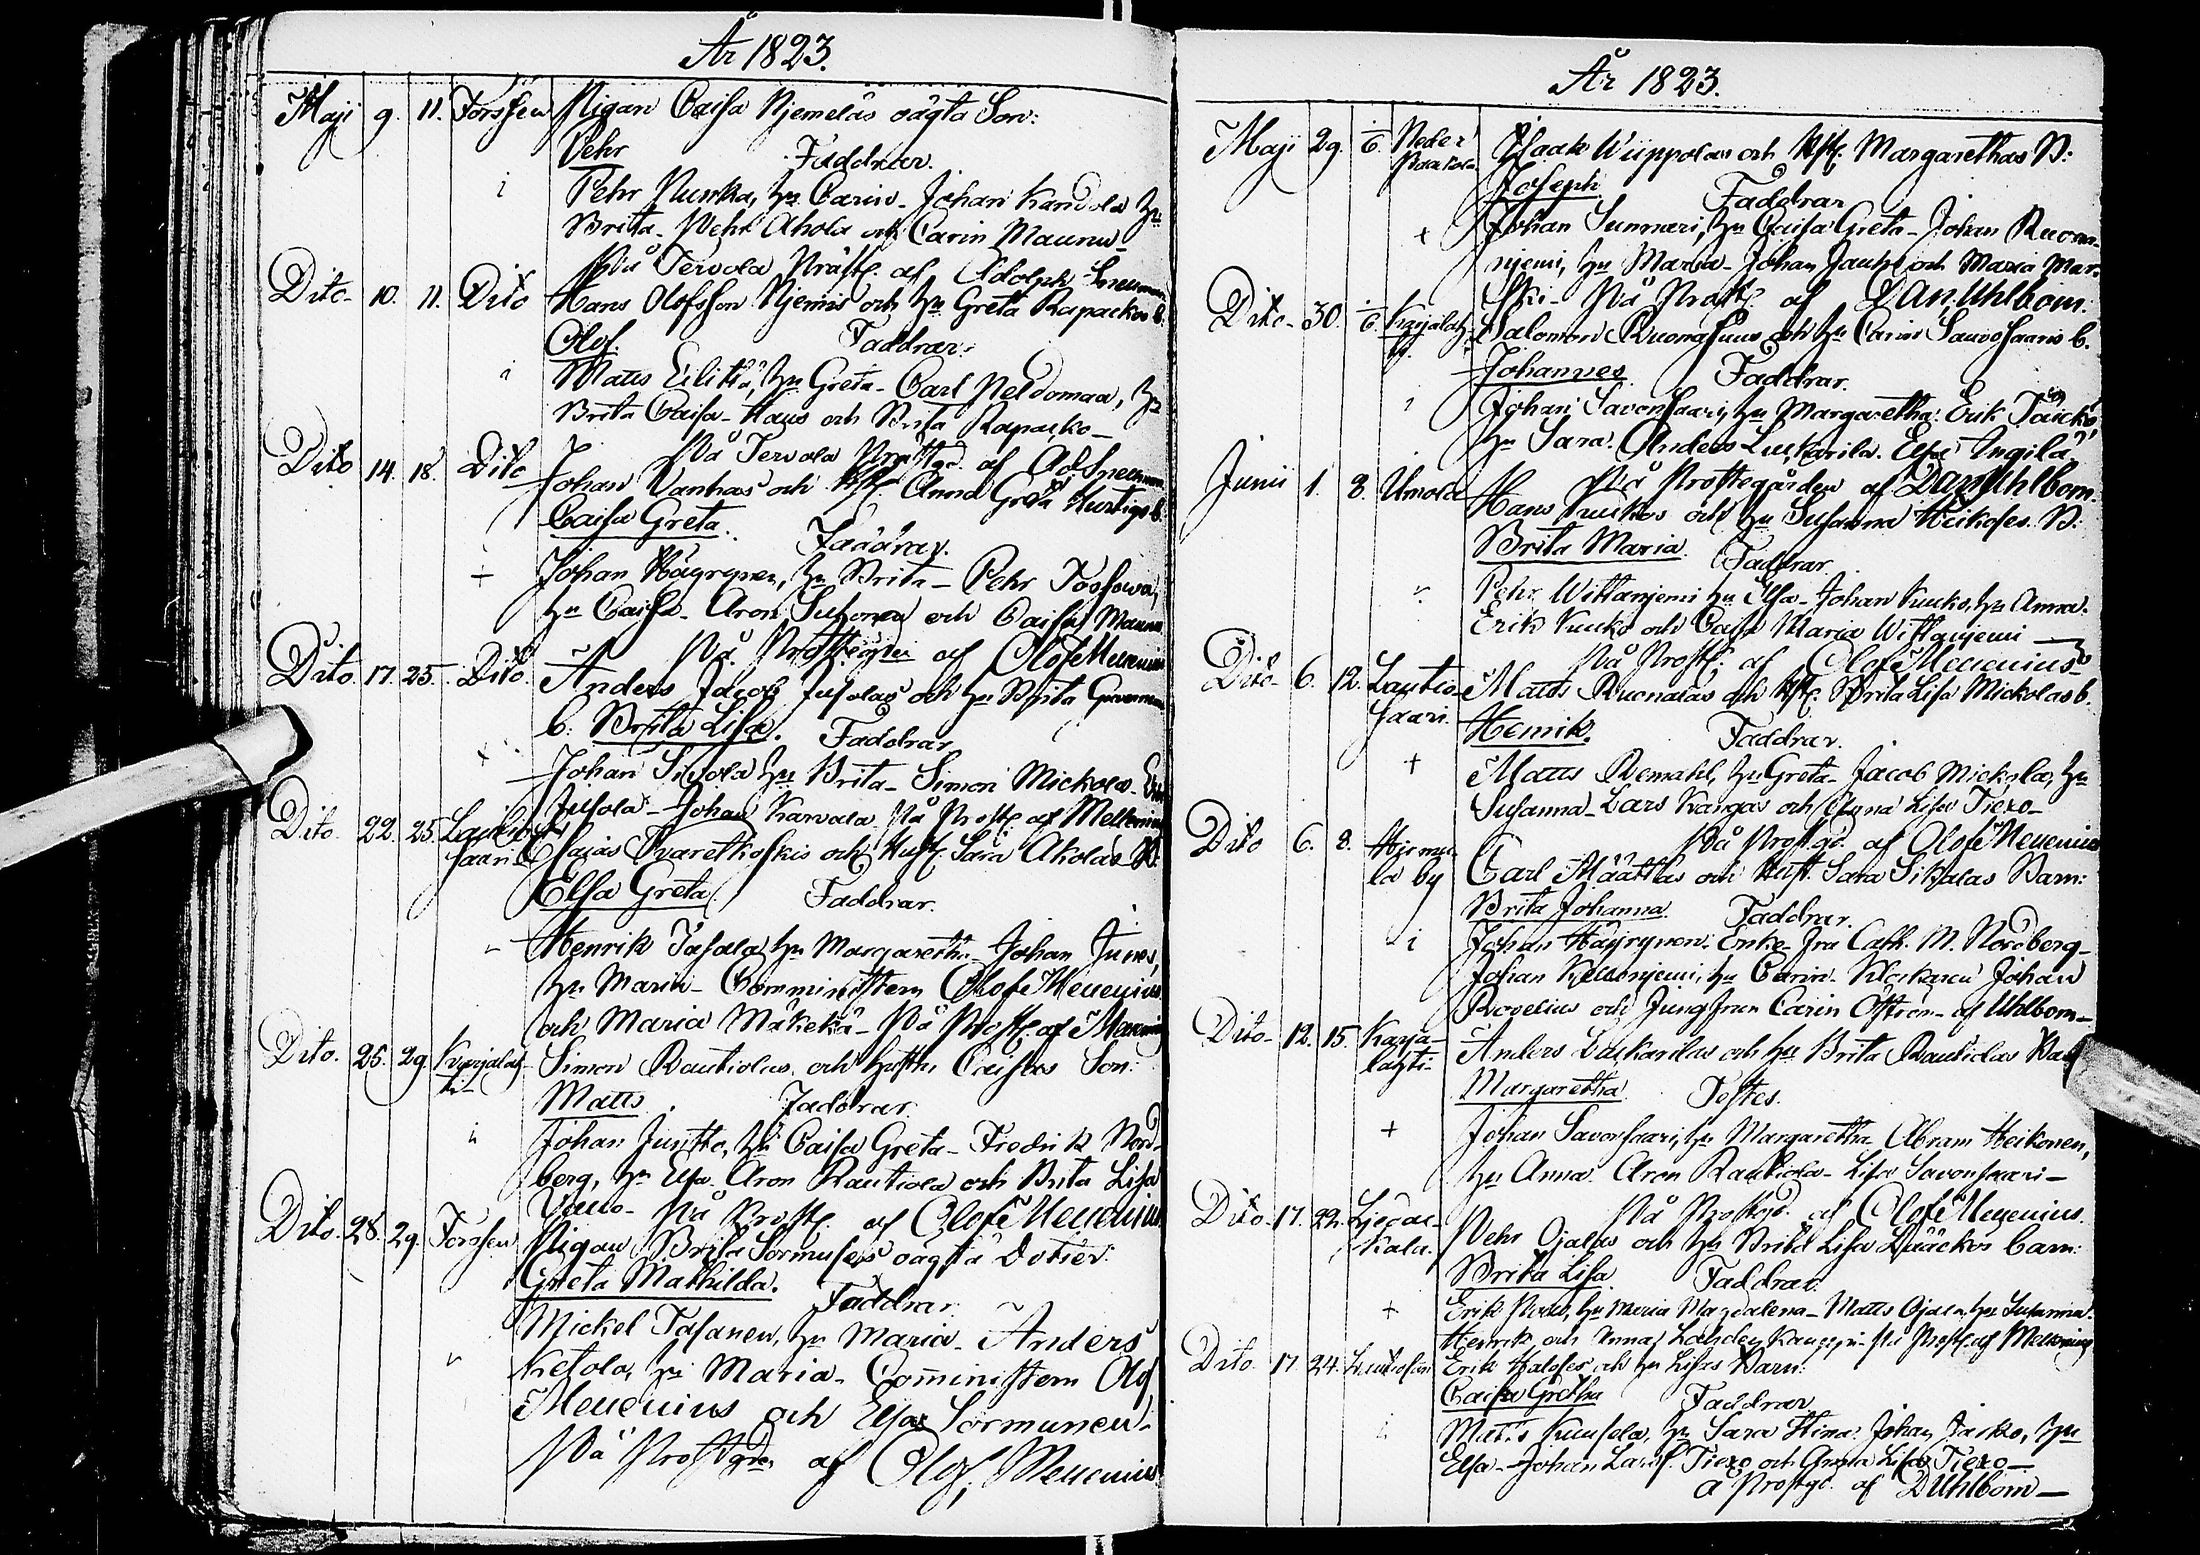 År 1823.
Maji 9. 11. Torssen Pigan Caisa Njemeläs oägta Son:
Pehr Faddrar.
Pehr Nurka, hu Carin - Johan Kandola hu
Brita - Pehr Ahola och Carin Maunu -
På Tervola Prästg. af Adolph Snellman
Dito - 10. 11. Dito Hans Olofsson Njemis och hu Greta Rapackos b.
Olof. Faddrar:
Matts Eilitkä, hu Greta - Carl Peldomaa, hu
Brita Caisa - Hans och Brita Rapacko -
På Tervola Prästgd. af Ad. Snellman
Dito 14. 18. Dito Johan Vanhas och Hust. Anna Greta Hurtigs b.
Caisa Greta. Faddrar.
+ Johan Häyrynen, hu Brita - Pehr
hu Caisa - Aron och Caisa Maunu
På Prostegården af Olof Mellenius
Dito 17. 25. Dito. Anders Jacob Jusolas och hu Brita
b: Brita Lisa. Faddrar
Johan Sivola hu Brita - Simon Mickola -
Jusola - Johan Karvala. På Prostg. af Mellenius
Dito. 22. 25. Lautio
saari Esaias Svaretkoskis och Hust. Sara Akolas B.
Elsa Greta. Faddrar.
Henrik Tasala, hu Margaretha - Johan
hu Maria - Comministern Olof Mellenius
och Maria Mäkelä - På Prostg. af Mellenius
Dito. 25. 29 Karjalah-
ti - Simon Rautiolas och hustr. Caisas Son:
Matts. Faddrar.
Johan Juntto, hu Caisa Greta - Fredrik Nord-
berg, hu Elsa - Aron Rautiola och Brita Lisa
På Prostg. af Olof Mellenius
Dito. 28. 29. Torssen Pigan Brita Sormuses oägta Dotter:
Greta Mathilda. Faddrar
Mickel Tasanen, hu Maria - Anders
Ketola, hu Maria - Comministern Olof
Mellenius och Elsa Sormunen -
På Prostgden af Olof Mellenius
År 1823.
Maji 29. 1/6. Neder
Paakola Isaak Wiippolas och Hst. Margarethas B:
Joseph Faddrar
+ Johan Summari, hu Caisa Greta - Johan Ruona-
njemi, hu Maria - Johan och Maria Mar-
På Prostg. af Dan. Uhlbom.
Dito - 30. 1/6 Karjalah-
ti. Salomon Ruonasuus och hu Carin Savosaaris b.
Johannes. Faddrar.
Johan Savonsaari, hu Margaretha. Erik
hu Sara. Anders Luckarila. Elsa Ingilä.
På Prostegården af Dan Uhlbom.
Junii 1. 8. Umola Hans Kuukos och hu Susanna Heikoses B:
Brita Maria. Faddrar.
Pehr Wittanjemi hu Elsa - Johan Kuuko, hu Anna.
Erik Kuuko och Caisa Maria Wittanjemi
På Prostg. af Olof Mellenius
Dito - 6. 12. Lautio-
saari. Matts Ruonalas och Hst. Brita Lisa Mickolas b.
Henrik. Faddrar.
+ Matts Remahl, hu Greta - Jacob Mickola, hu
Susanna - Lars Kangas och Anna Lisa Tiero -
På Prostgd. af Olof Mellenius
Dito 6. 8. Hirmu-
la by Carl Määttäs och Hust. Sara Sikalas Barn:
Brita Johanna. Faddrar.
Johan Häyrynen. Enke-fru Cath. M. Nordberg -
Johan Kellonjemi, hu Carin - Klockaren Johan
Rovelius och Jungfrun Carin Öström - af Uhlbom -
Dito - 12. 15. Karja-
lahti - Anders Luckarilas och hu Brita Rautiolas Barn
Margaretha Testes.
+ Johan Savonsaari, hu Margaretha. Abram Heikonen,
hu Anna. Aron Rautiola - Lisa Savonsaari -
På Prostgd. af Olof Mellenius.
Dito - 17. 22. Liedac-
kala. Pehr Ojalas och hu Brita Lisa Dääckos barn:
Brita Lisa Faddrar.
+ Erik hu Maria Magdalena - Matts Ojala, hu Susanna.
Henrik och Anna På Prostg. af Mellenius
Dito 17. 24. Lautiosaari Erik Haloses och hu Lisas Barn:
Caisa Gretha Faddrar
Matts Kuusela, hu Sara Stina. Johan hu
Elsa - Johan Larss. Tiero och Greta Lisa Tiero -
å Prostgd. af D Uhlbom -